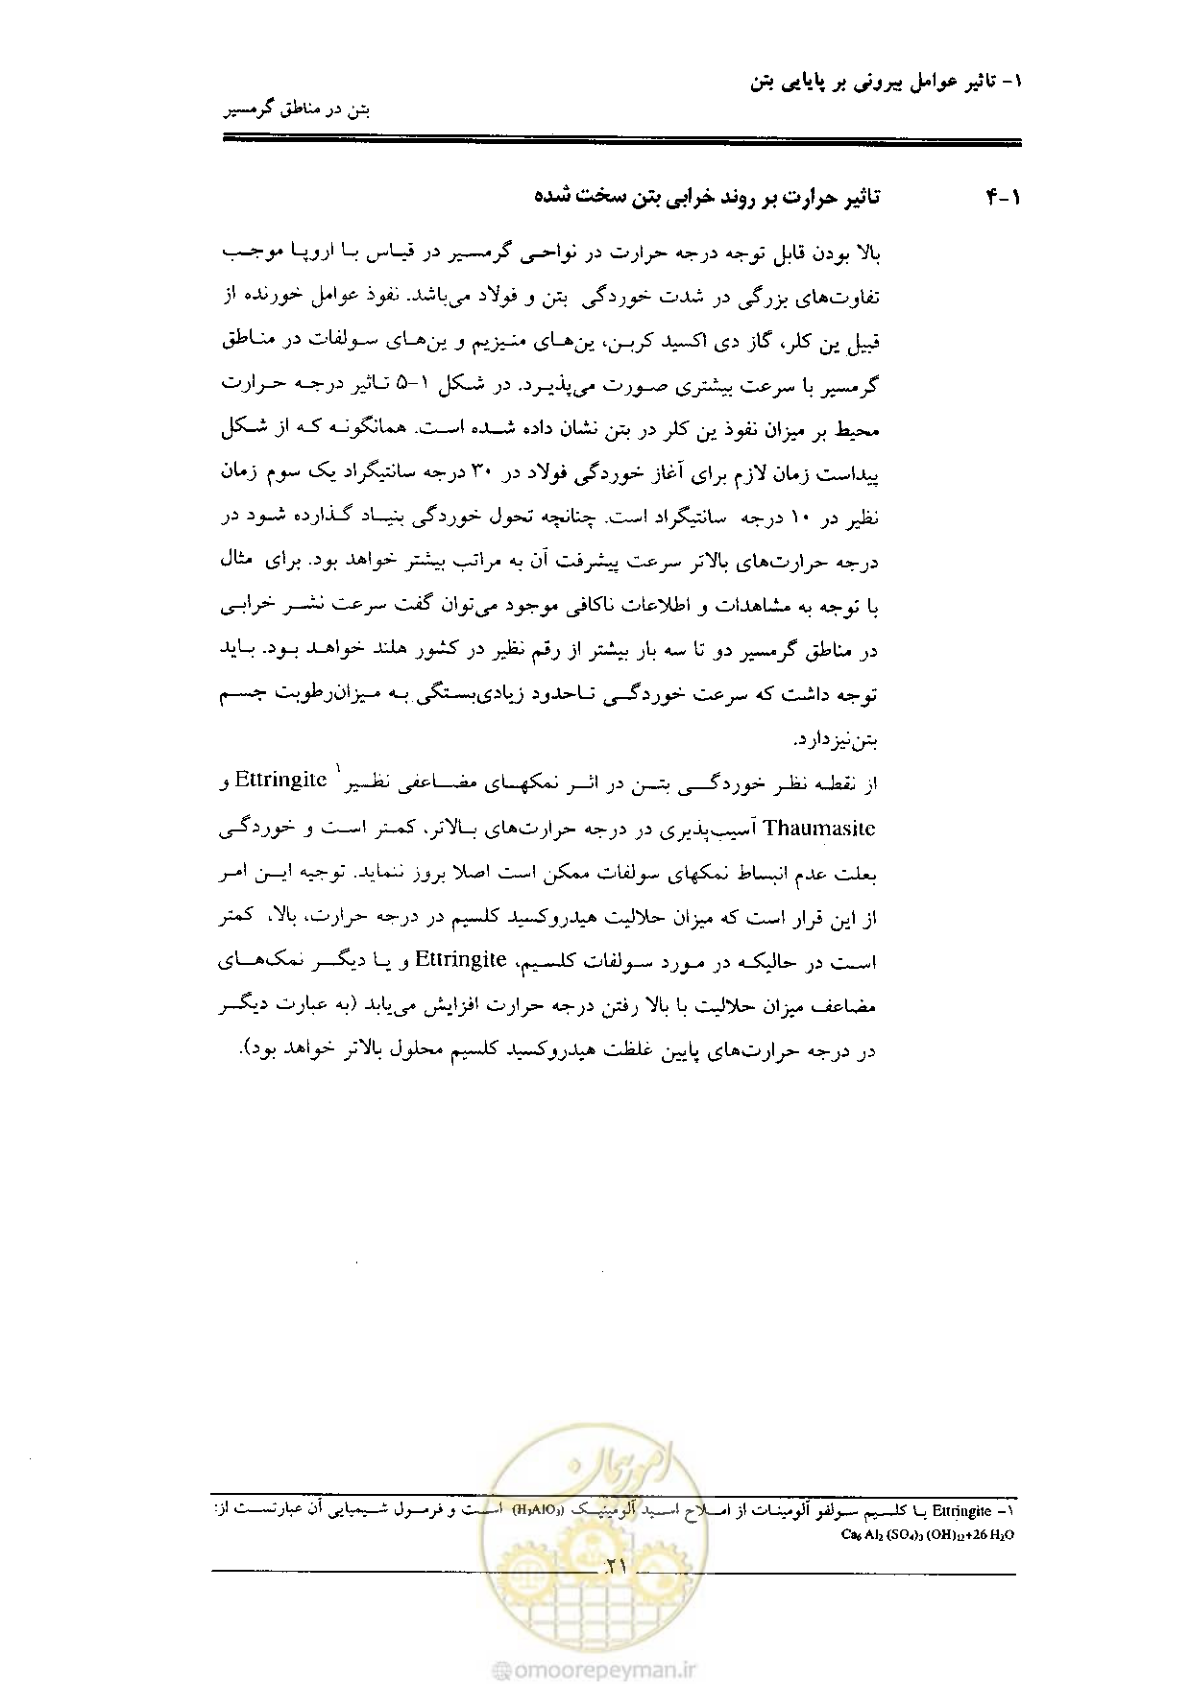 ۱- تاثیر عوامل بیرونی بر پایایی بتن
بتن در مناطق گرمسیر
۴-۱ تاثیر حرارت بر روند خرابی بتن سخت شده
بالا بودن قابل توجه درجه حرارت در نواحی گرمسیر در قیاس با اروپا موجب
تفاوت‌های بزرگی در شدت خوردگی بتن و فولاد می‌باشد. نفوذ عوامل خورنده از
قبیل ین کلر، گاز دی اکسید کربن، ین‌های منیزیم و ین‌های سولفات در مناطق
گرمسیر با سرعت بیشتری صورت می‌پذیرد. در شکل ۱-۵ تاثیر درجه حرارت
محیط بر میزان نفوذ ین کلر در بتن نشان داده شده است. همانگونه که از شکل
پیداست زمان لازم برای آغاز خوردگی فولاد در ۳۰ درجه سانتیگراد یک سوم زمان
نظیر در ۱۰ درجه سانتیگراد است. چنانچه تحول خوردگی بنیاد گذارده شود در
درجه حرارت‌های بالاتر سرعت پیشرفت آن به مراتب بیشتر خواهد بود. برای مثال
با توجه به مشاهدات و اطلاعات ناکافی موجود می‌توان گفت سرعت نشر خرابی
در مناطق گرمسیر دو تا سه بار بیشتر از رقم نظیر در کشور هلند خواهد بود. باید
توجه داشت که سرعت خوردگی تاحدود زیادی‌بستگی به میزان‌رطوبت جسم
بتن‌نیزدارد.
از نقطه نظر خوردگی بتن در اثر نمکهای مضاعفی نظیر Ettringite ۱ و
Thaumasite آسیب‌پذیری در درجه حرارت‌های بالاتر، کمتر است و خوردگی
بعلت عدم انبساط نمکهای سولفات ممکن است اصلا بروز ننماید. توجیه این امر
از این قرار است که میزان حلالیت هیدروکسید کلسیم در درجه حرارت، بالا، کمتر
است در حالیکه در مورد سولفات کلسیم، Ettringite و یا دیگر نمک‌های
مضاعف میزان حلالیت با بالا رفتن درجه حرارت افزایش می‌یابد (به عبارت دیگر
در درجه حرارت‌های پایین غلظت هیدروکسید کلسیم محلول بالاتر خواهد بود).
۱- Ettringite یا کلسیم سولفو آلومینات از املاح اسید آلومینیک (H₃AlO₃) است و فرمول شیمیایی آن عبارتست از:
Ca₆ Al₂ (SO₄)₃ (OH)₁₂+26 H₂O
۲۱
امور پیمان
@omoorepeyman.ir